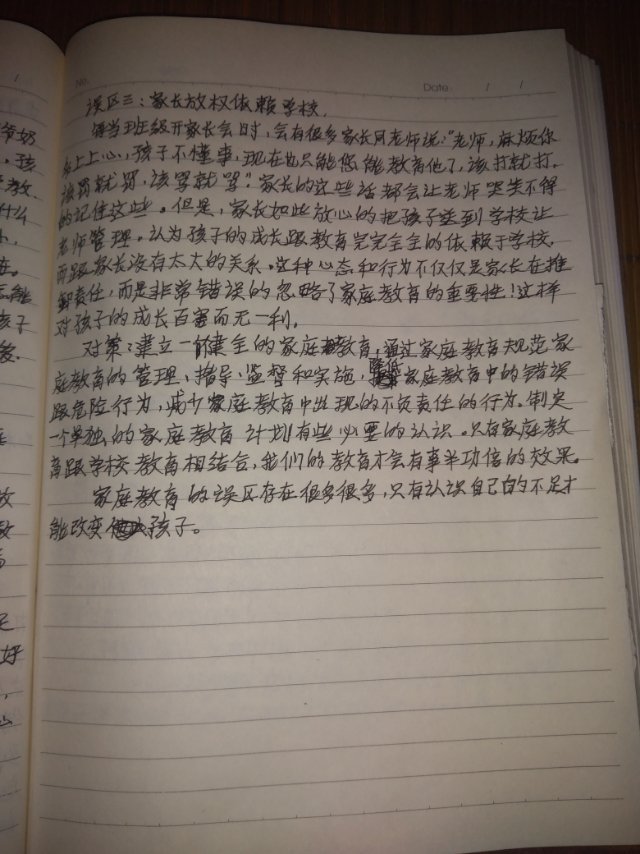 No.
Date: / /
误区三：家长放权依赖学校.
每当班级开家长会时，会有很多家长同老师说："老师，麻烦你
多上上心，孩子不懂事，现在也只能您能教育他了，该打就打.
该罚就罚，该骂就骂"。家长的这些话都会让老师哭笑不得
的记住这些。但是，家长如此放心的把孩子送到学校让
老师管理。认为孩子的成长跟教育完完全全的依赖于学校.
而跟家长没有太大的关系。这种心态和行为不仅仅是家长在推
卸责任，而是非常错误的忽略了家庭教育的重要性！这样
对孩子的成长百害而无一利。
对策：建立一个健全的家庭教育，通过家庭教育规范家
庭教育的管理、指导、监督和实施，降低家庭教育中的错误
跟危险行为，减少家庭教育中出现的不负责任的行为。制定
一个单独的家庭教育计划有些必要的认识。只有家庭教
育跟学校教育相结合，我们的教育才会有事半功倍的效果。
家庭教育的误区存在很多很多，只有认识自己的不足才
能改变孩子。
爷奶
，孩
教.
什么
在。
能
孩子
发.
放
敢
足
好